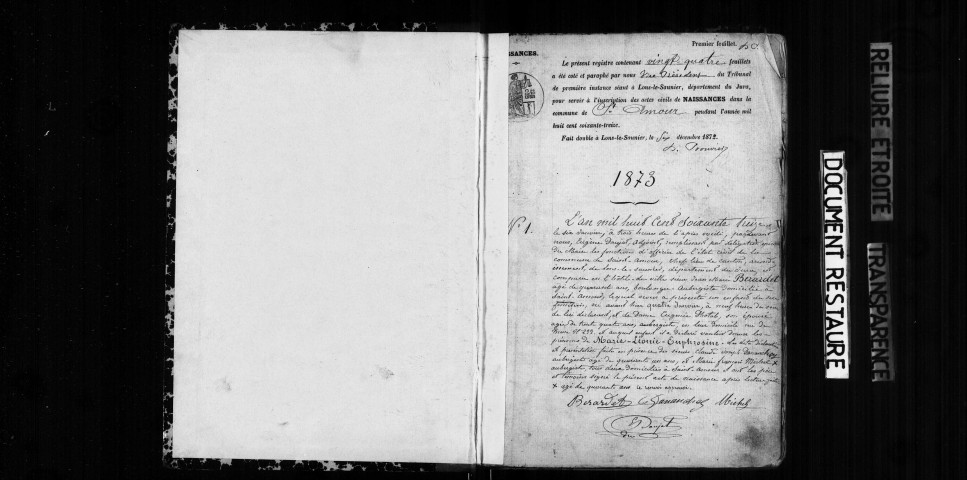 Premier feuillet.
NAISSANCES.
Le présent registre contenant vingt quatre feuillets
a été coté et paraphé par nous Vice Président du Tribunal
de première instance séant à Lons-le-Saunier, département du Jura,
pour servir à l'inscription des actes civils de NAISSANCES dans la
commune de St Amour pendant l'année mil
huit cent soixante-treize.
Fait double à Lons-le-Saunier, le six décembre 1872.
1873
N° 1.
L'an mil huit Cent soixante treize
le six Janvier, à trois heures de l'après midi, pardevant
nous, Eugène Daujat, adjoint, remplissant par délégation
du Maire les fonctions d'officier de l'état civil de la
commune de Saint-Amour, chef-lieu de canton, arrondis
sement de Lons-le-Saunier, département du Jura, est
comparu en l'hôtel de ville sieur Jean Marie Berardet
agé de quarante ans, boulanger aubergiste domicilié à
Saint Amour, lequel nous a présenté un enfant du sexe
féminin, né avant hier quatre Janvier, à neuf heures du
de lui déclarant, et de Dame Eugénie son épouse
agée de trente quatre ans, aubergiste, en leur domicile rue de
N° 299, et auquel enfant il a déclaré vouloir donner les
prénoms de Marie-Léonie-Euphrosine. Les dites déclaration
et présentation faites en présence des sieurs Claude Joseph
aubergiste agé de quarante un ans, et Marie François Michel +
aubergiste, tous deux domiciliés à Saint-Amour et ont les père
et témoins signé le présent acte de naissance après lecture faite
+ agé de quarante ans
Berardet Michel
Daujat
DOCUMENT RESTAURE
RELIURE ETROITE
TRANSPARENCE